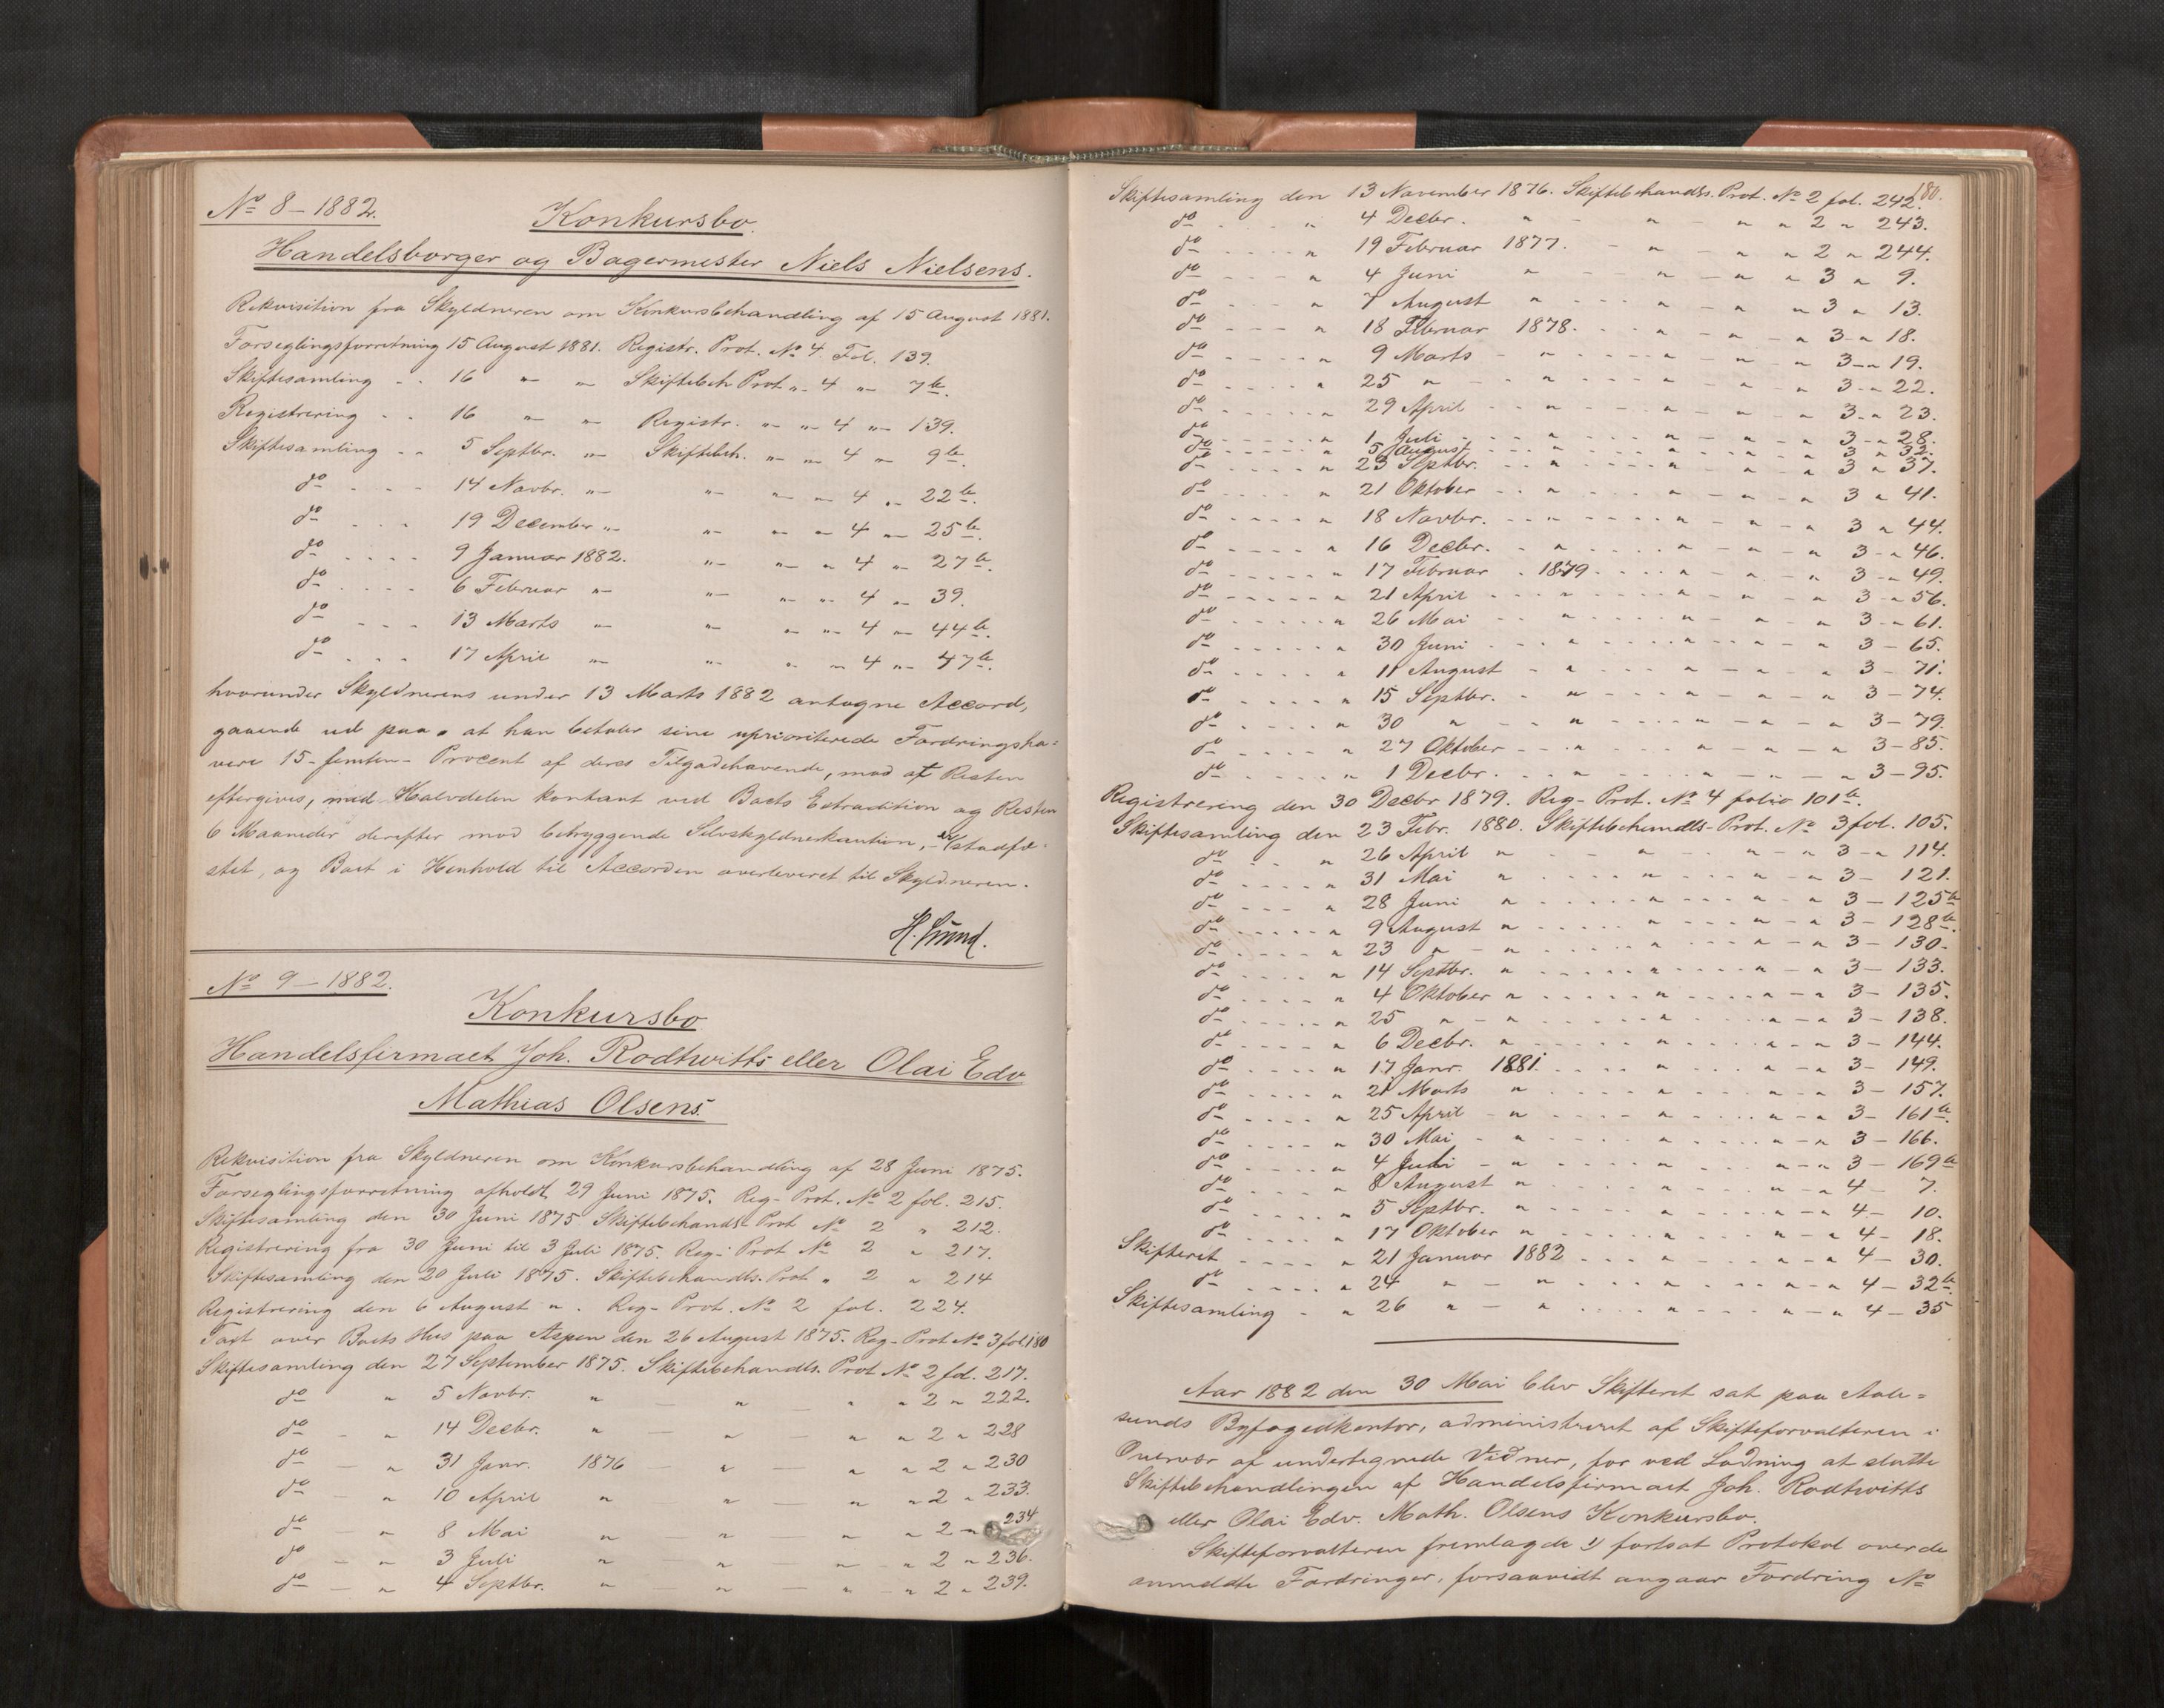 No 8 - 1882.
Konkursbo.
Handelsborger og Bagermester Niels Nielsens.
Rekvisition fra Skyldneren om Konkursbehandling af 15 August 1881.
Forseglingsforretning 15 August 1881. Registr. Prot. No 4. Fol. 139.
Skiftesamling - - 16 " " Skiftebeh Prot " 4 " 7b.
Registrering - - 16 " " Registr. " " 4 " 139.
Skiftesamling - - 5 Septbr. " Skiftebeh. " " 4 " 9b.
do - - - 14 Novbr. " " " " 4 " 22b.
do - - - 19 December " " " " 4 " 25b.
do - - - - 9 Januar 1882. " " " 4 " 27b.
do - - - - 6 Februar " " " " 4 " 39.
do - - - 13 Marts " " " " 4 " 44b.
do - - - 17 April " " " " 4 " 47b.
hvorunder Skyldnerens under 13 Marts 1882 antagne Accord,
gaaende ud paa at han betaler sine uprioriterede Fordringsha-
vere 15 - femten - Procent af deres Tilgodehavende, mod at Resten
eftergives, med Halvdelen kontant ved Boets Extradition og Resten
6 Maaneder derefter mod betryggende Selvskyldnerkaution, - er stadfæ-
stet, og Boet i Henhold til Accorden overleveret til Skyldneren.
H. Lund.
No 9 - 1882.
Konkursbo
Handelsfirmaet Joh. Rodtwitts eller Olai Edv
Mathias Olsens.
Rekvisition fra Skyldneren om Konkursbehandling af 28 Juni 1875.
Forseglingsforretning afholdt 29 Juni 1875. Reg- Prot. No 2 fol. 215.
Skiftesamling den 30 Juni 1875 Skiftebehandls Prot No 2 " 212.
Registrering fra 30 Juni til 3 Juli 1875. Reg- Prot No 2 " 217.
Skiftesamling den 20 Juli 1875. Skiftebehandls. Prot " 2 " 214
Registrering den 6 August ". Reg- Prot. No 2 fol. 224.
Taxt over Boets Hus paa Aspen den 26 August 1875. Reg- Prot No 3 fol. 180
Skiftesamling den 27 September 1875. Skiftebehandls. Prot No 2 fol. 217.
do " 5 Novbr. " - " - " " 2 " 222.
do - " 14 Decbr. " - " - " " 2 " 228
do - " 31 Janr. 1876 - " - " " 2 " 230
do - " 10 April " " - " " 2 " 233.
do - " 8 Mai " - " - " " 2 " 234
do - " 3 Juli " - " - " " 2 " 236.
do - " 4 Septbr. " - " - " " 2 " 239.
180.
Skiftesamling den 13 November 1876. Skiftebehandls. Prot. No 2 fol. 242.
do - - " 4 Decbr. " - " - " " 2 " 243.
do - - - " 19 Februar 1877. - " - " " 2 " 244.
do - - - " 4 Juni " - " - " " 3 " 9.
do - - - " 7 August " - - - " - " " 3 " 13.
do - - - " 18 Februar 1878. - - " - " - " 3 - " 18.
do - - - - " 9 Marts - " - - - " - " - " 3 - " 19.
do - - - - " 25 " - " - - - " - " - " 3 - " 22.
do - - - - " 29 April - - " - - " - " - " 3 - " 23.
do - - - - - " 1 Juli - - - " - - " - " - " 3 - " 28.
do - - - - - " 5 August - - - " - - " - " - " 3 " 32.
do - - - - " 23 Septbr. - - " - - " - " - " 3 " 37.
do - - - - " 21 Oktober - - " - - " - " - " 3 " 41.
do - - - - - " 18 Novbr. - - - " - - " - " - " 3 " 44.
do - - - - - " 16 Decbr. - " - - - " - " - " 3 - " 46.
do - - - - - " 17 Februar - 1879 - - - " - " - " 3 - " 49.
do - - - - - " 21 April - - - " - - - " - " - " 3 - " 56.
do - - - - - " 26 Mai - - " - - - " - " - " 3 - " 61.
do - - - - - " 30 Juni - - " - - - " - " - " 3 - 65.
do - - - - " 11 August - " - - - " - " - " 3 - 71.
do - - - - " 15 Septbr. - " - - - " - " - " 3 - 74.
do - - - - " 30 " - " - - - " - " - " 3 - 79.
do - - - - " 27 Oktober - - " - - " - " - " 3 - 85.
do - - - - " 1 Decbr. - - " - - - " - " - " 3 - 95.
Registrering den 30 Decbr 1879. Reg- Prot. No 4 folio 101b.
Skiftesamling den 23 Febr. 1880. Skiftebehandls- Prot. No 3 fol. 105.
do - - " 26 April " - - " - " - " 3 - " 114.
do - - - - " 31 Mai " - - - " - - " - " 3 - 121.
do - - - " 28 Juni " - - - " - - " - " 3 - 125b
do - - - - " 9 August " - - - " - - " - " 3 - 128b.
do - - - - " 23 " - " - - - " - " - " 3 - 130.
do - - - - " 14 Septbr. " - - - " - - " - " 3 - 133.
do - - - - " 4 Oktober " - - - " - - " - " 3 - 135.
do - - - - - " 25 " - " - - - " - - " - " 3 - 138.
do - - - - " 6 Decbr. " - - - " - - " - " 3 - 144.
do - - - - " 17 Janr. 1881. - - - " - - " - " 3 - 149.
do - - - - " 21 Marts " - - - " - - " - " 3 - 157.
do - - - - " 25 April - " - - - " - - " - " 3 - 161b
do - - - - " 30 Mai - " - - - " - - " - " 3 - 166.
do - - - - " 4 Juli - " - - - " - - " - " 3 - 169b
do - - - - " 8 August " - - - " - - " - " 4 - 7.
do - - - - " 5 Septbr. " - - - " - - " - " 4 - 10.
do - - - - " 17 Oktober " - - - " - - " - " 4 - 18.
Skifteret - - - - " 21 Januar 1882 - - - " - - " - " 4 - 30.
do - - - - " 24 " - " - - - " - - " - " 4 - 32b.
Skiftesamling - " 26 " - " - - - " - - " - " 4 - 35
Aar 1882 den 30 Mai blev Skifteret sat paa Aale-
sunds Byfogedkontor, administreret af Skifteforvalteren i
Overvær af undertegnede Vidner, for ved Lodning at slutte
Skiftebehandlingen af Handelsfirmaet Joh. Rodtwitts
eller Olai Edv. Math. Olsens Konkursbo.
Skifteforvalteren fremlagde 1) fortsat Protokol over de
anmeldte Fordringer, forsaavidt angaar Fordring No